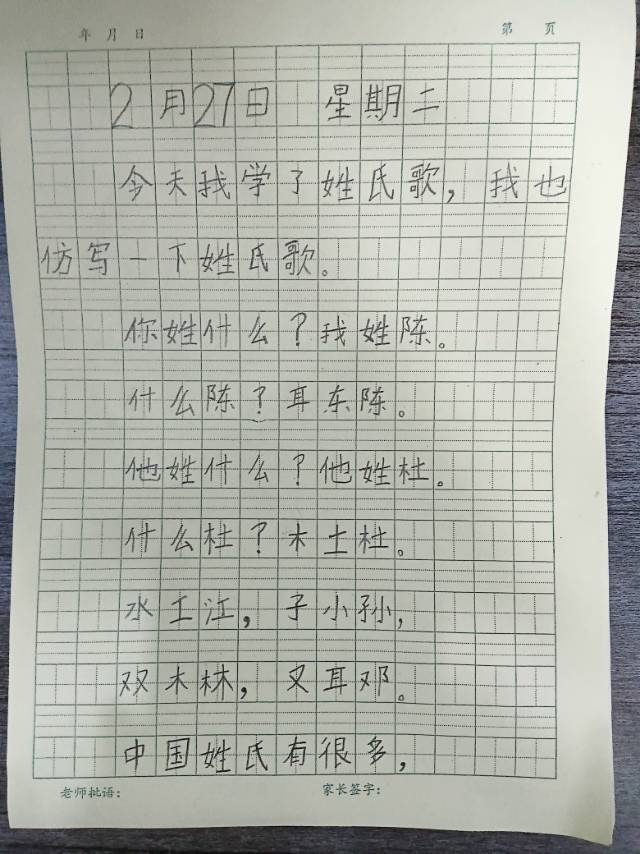 年 月 日 第 页
2月27日 星期二
今天我学了姓氏歌，我也
仿写一下姓氏歌。
你姓什么？我姓陈。
什么陈？耳东陈。
他姓什么？他姓杜。
什么杜？木土杜。
水工江，子小孙，
双木林，又耳邓。
中国姓氏有很多，
老师批语： 家长签字：